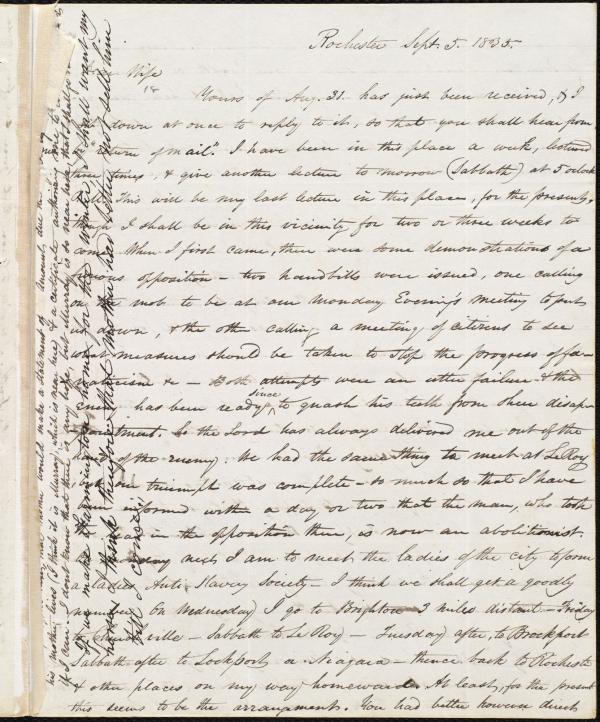 Rochester Sept. 5. 1835.
Wife
Yours of Aug. 31. has just been received, & I
down at once to reply to it, so that you shall hear from
return of mail". I have been in this place a week, lectured
three times, & give another lecture to morrow (Sabbath) at 5 o'clock
This will be my last lecture in this place, for the present,
though I shall be in this vicinity for two or three weeks to
come. When I first came, there were some demonstrations of a
furious opposition - two handbills were issued, one calling
on the mob to be at our Monday Evening's meeting to put
us down, & the other calling a meeting of citizens to see
what measures should be taken to stop the progress of fa-
naticism &c - Both attempts were an utter failure - & the
enemy has been ready since to gnash his teeth from sheer disap-
pointment. So the Lord has always delivered me out of the
hands of the enemy. We had the same thing to meet at LeRoy
but our triumph was complete - so much so that I have
been informed with a day or two that the man, who took
in the opposition there, is now an abolitionist.
next I am to meet the ladies of the city to form
a Ladies Anti Slavery Society - I think we shall get a goodly
number. On Wednesday I go to Brighton 3 miles distant - Friday
to Churchville - Sabbath to Le Roy - Tuesday after, to Brockport
Sabbath after to Lockport, or Niagara - thence back to Rochester
& other places on my way homeward. At least, for the present
this seems to be the arrangement. You had better however direct
his mother lives (I think it is Murray) which is near here, if a certificate authorizing me to
if I can. I don't know that there is any hope, but Murray is so near here that I
If we make Farmington home for the winter, I shall want my
horse. I think therefore that mother had better not sell him
till I come.